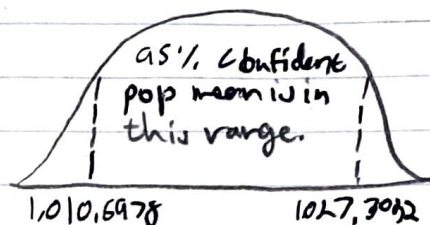 95% Confident
pop mean is in
this range.
1,010.6978 1027.3032